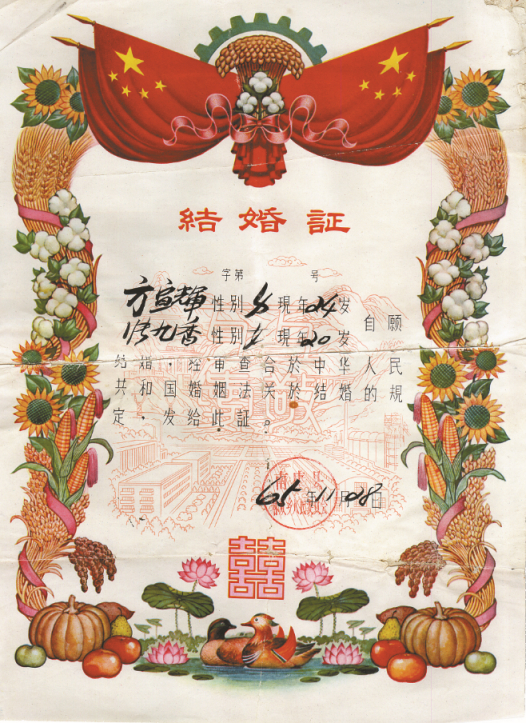 結婚証
字第 号
方宣輝 性別 男 現年24岁
張九香 性別 女 現年20岁 自願
結婚，经审查合於中华人民
共和国婚姻法关於結婚的規
定，发给此証。
65年11月28日
囍